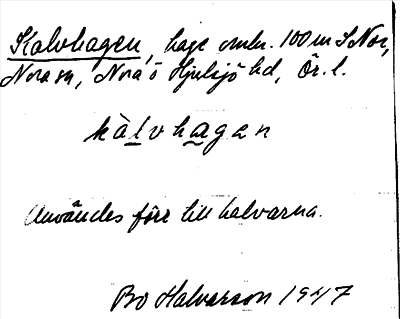 Kalvhagen, hage omkr. 100 m S Nor,
Nora sn, Nora o Hjulsjö hd, Ör. l.
kàlvhagan
Användes förr till kalvarna.
Bo Halvarson 1947